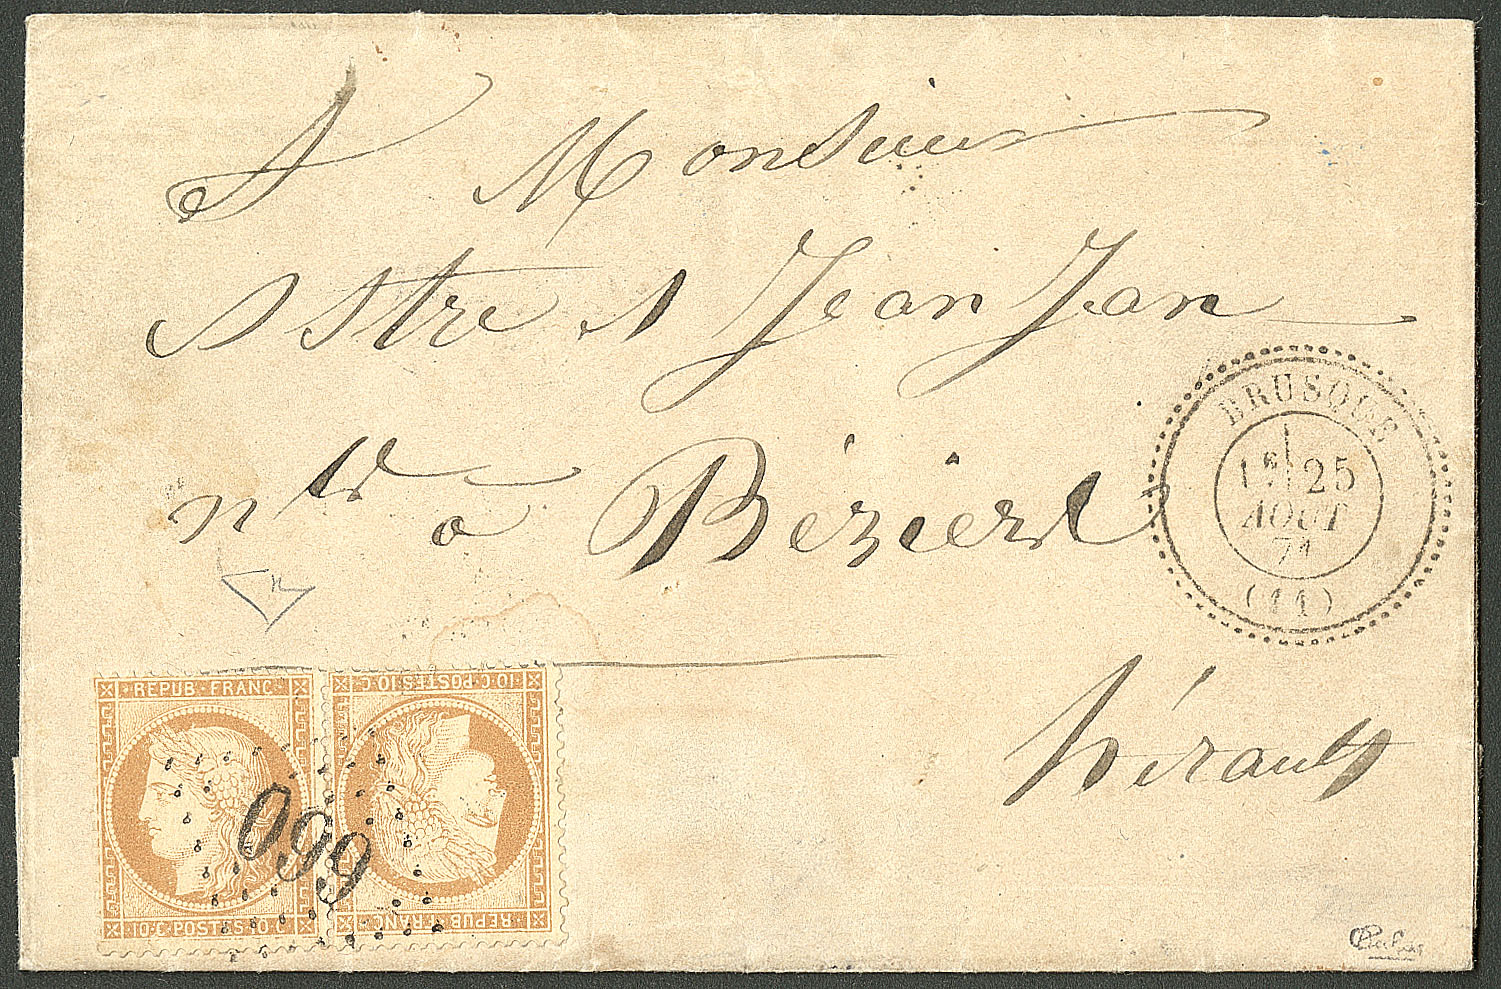 A Monsieur
Astre s Jean Jan
nte a Béziers
hérault
BRUSQUE
1E 25
AOUT
71
(11)
REPUB FRANC
10·C·POSTES·10·C
10·C·POSTES·10·C
REPUB FRANC
660